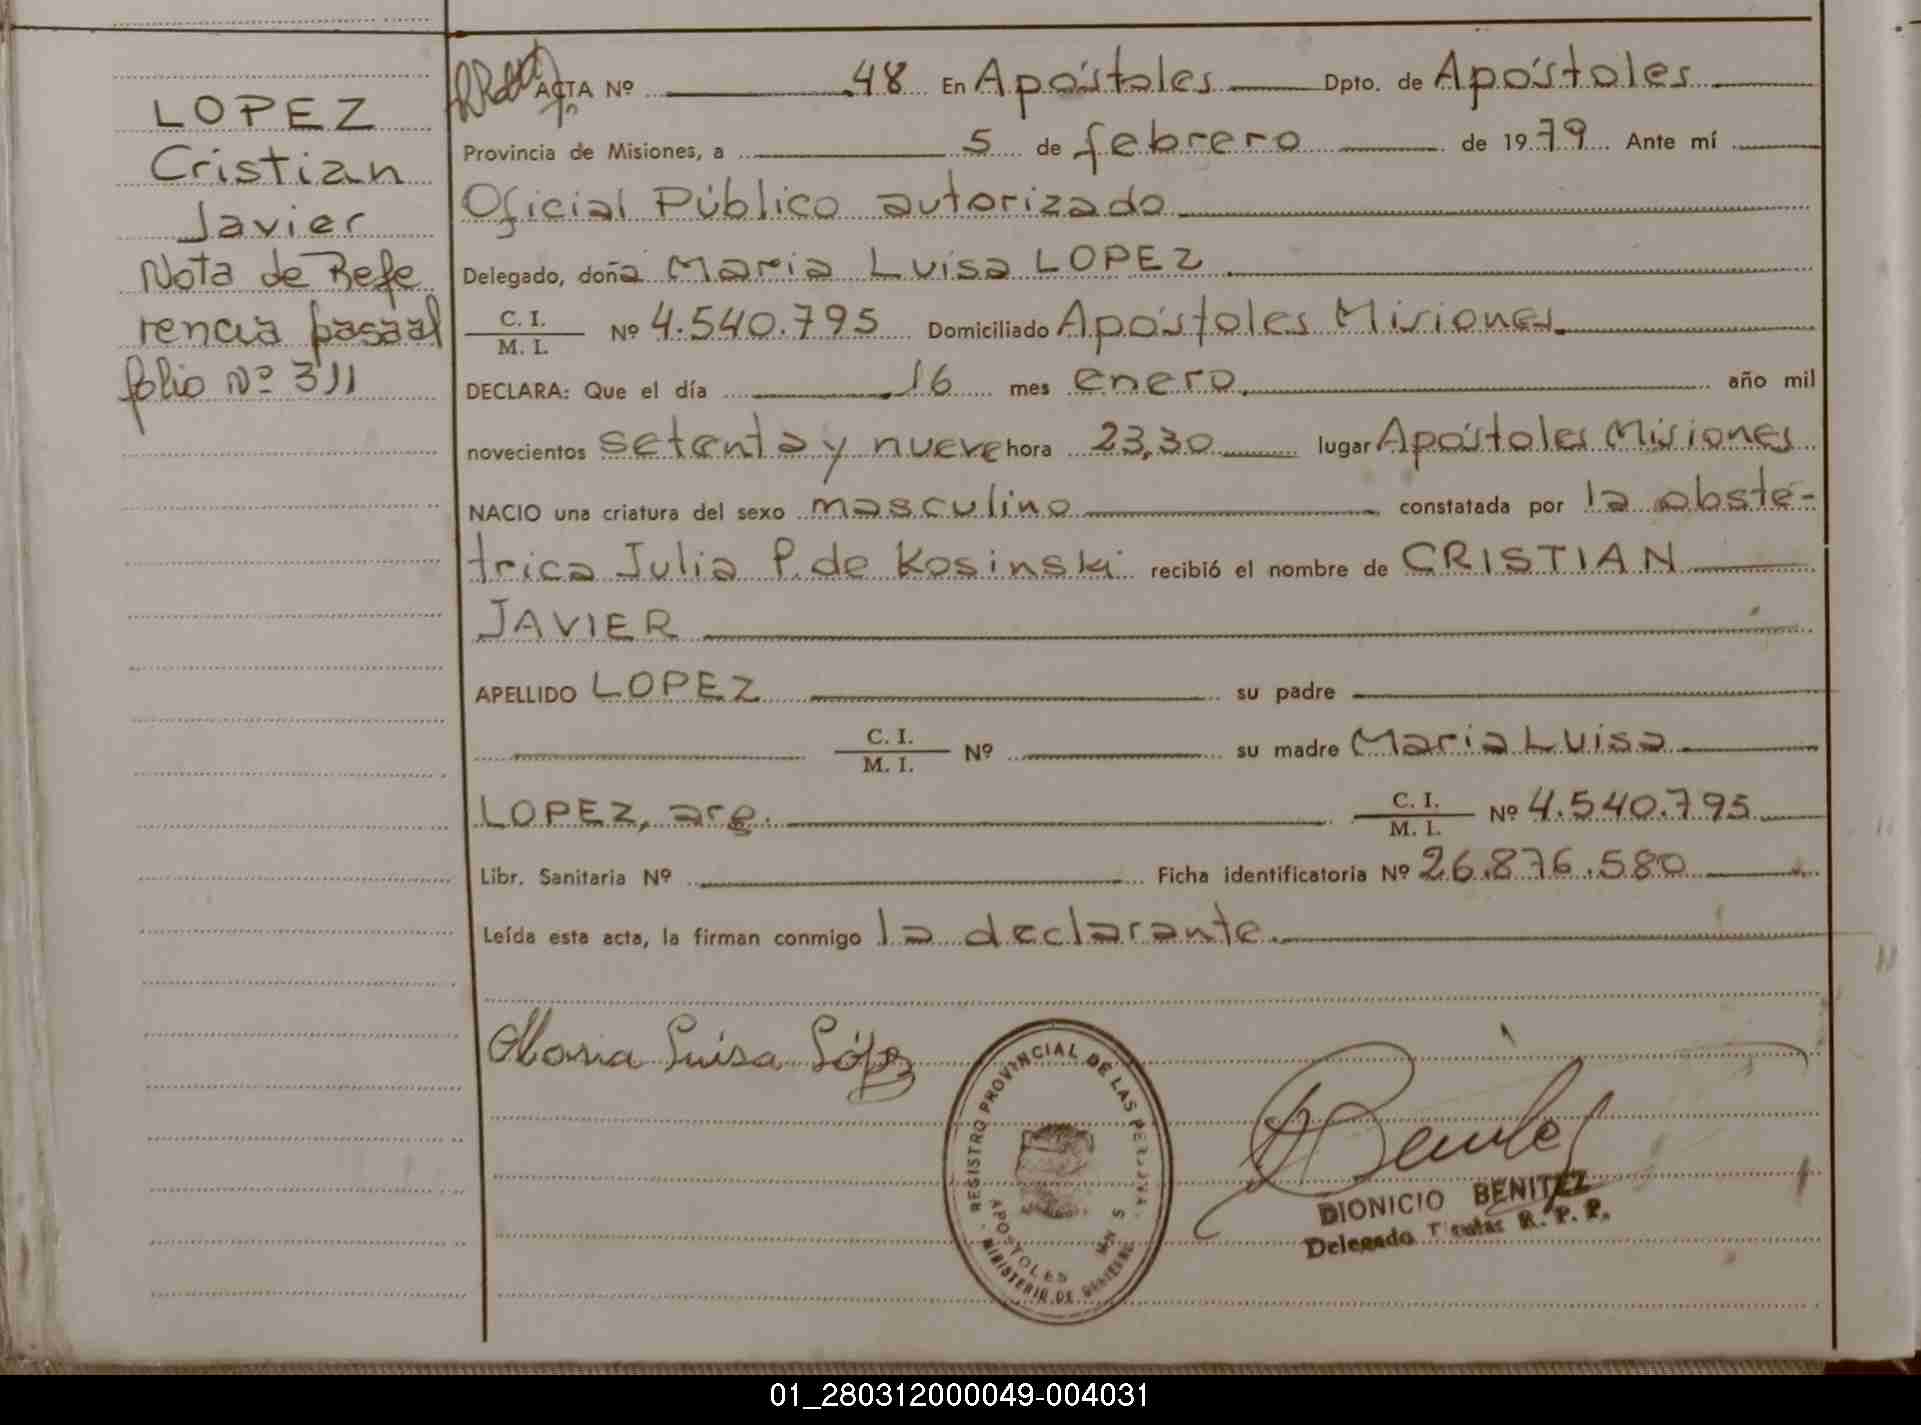 LOPEZ
Cristian
Javier
Nota de Refe
rencia pasa al
folio Nº 311
ACTA Nº 48 En Apóstoles Dpto. de Apóstoles
Provincia de Misiones, a 5 de febrero de 1979 Ante mí
Oficial Público autorizado
Delegado, doña Maria Luisa LOPEZ
C. I.
M. I. Nº 4.540.795 Domiciliado Apóstoles Misiones
DECLARA: Que el día 16 mes enero año mil
novecientos setenta y nueve hora 23,30 lugar Apóstoles Misiones
NACIO una criatura del sexo masculino constatada por la obste-
trica Julia P. de Kosinski recibió el nombre de CRISTIAN
JAVIER
APELLIDO LOPEZ su padre
C. I.
M. I. Nº su madre Maria Luisa
LOPEZ, arg. C. I.
M. I. Nº 4.540.795
Libr. Sanitaria Nº Ficha identificatoria Nº 26.876.580
Leída esta acta, la firman conmigo la declarante.
Maria Luisa López
REGISTRO PROVINCIAL DE LAS PERSONAS
APOSTOLES MNS
MINISTERIO DE GOBIERNO
DIONICIO BENITEZ
Delegado R. P. P.
01_280312000049-004031